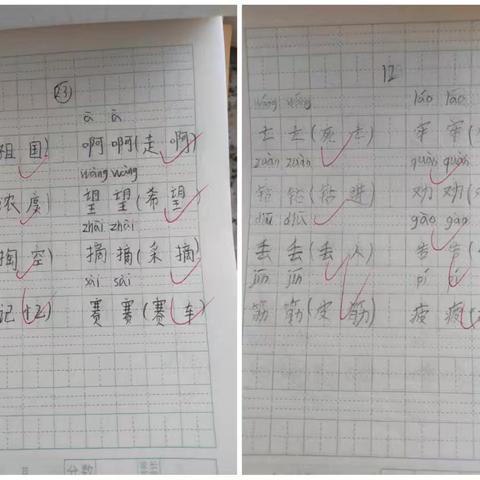 23
ā ā
祖 国) 啊 啊(走 啊)
wàng wàng
浓 度) 望 望(希 望)
zhāi zhāi
掏 空) 摘 摘(采 摘)
sài sài
记 忆) 赛 赛(赛 车)
12
láo láo
去 去( 去) 牢 牢(
zuān zuān quàn quàn
钻 钻(钻 进) 劝 劝(
diū diū gào gào
丢 丢(丢 人) 告 告(
jīn jīn pí pí
筋 筋(皮 筋) 疲 疲(
分数